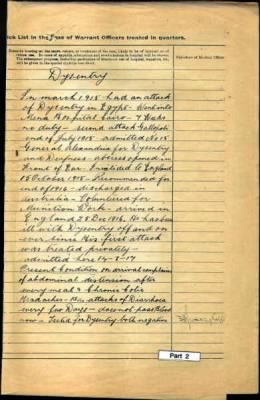 Sick List in the Case of Warrant Officers treated in quarters.
Signature of Medical Officer
Dysentry
In march 1915 had an attack
of Dysentry in Egypt. Went into
Mena Hospital Cairo - 4 Weeks
no duty - second attack Gallipoli
end of July 1915 admitted No 15
General Alexandria for Dysentry
and Deafness - abscess opened in
front of Ear. Invalided to England
October 1915 - Recommended for
end of 1916 - discharged in
Australia - Volunteered for
Munition Work - arrived in
England 25 Dec 1916. He has been
ill with Dysentry off and on
ever since his first attack
was treated privately -
admitted here 14-3-17
Present Condition on arrival complains
of abdominal distension after
every meal & Chronic Colic
Headaches - Has attacks of Diarrhoea
every few Days - does not pass Blood
now - Tests for Dysentry both negative
Part 2